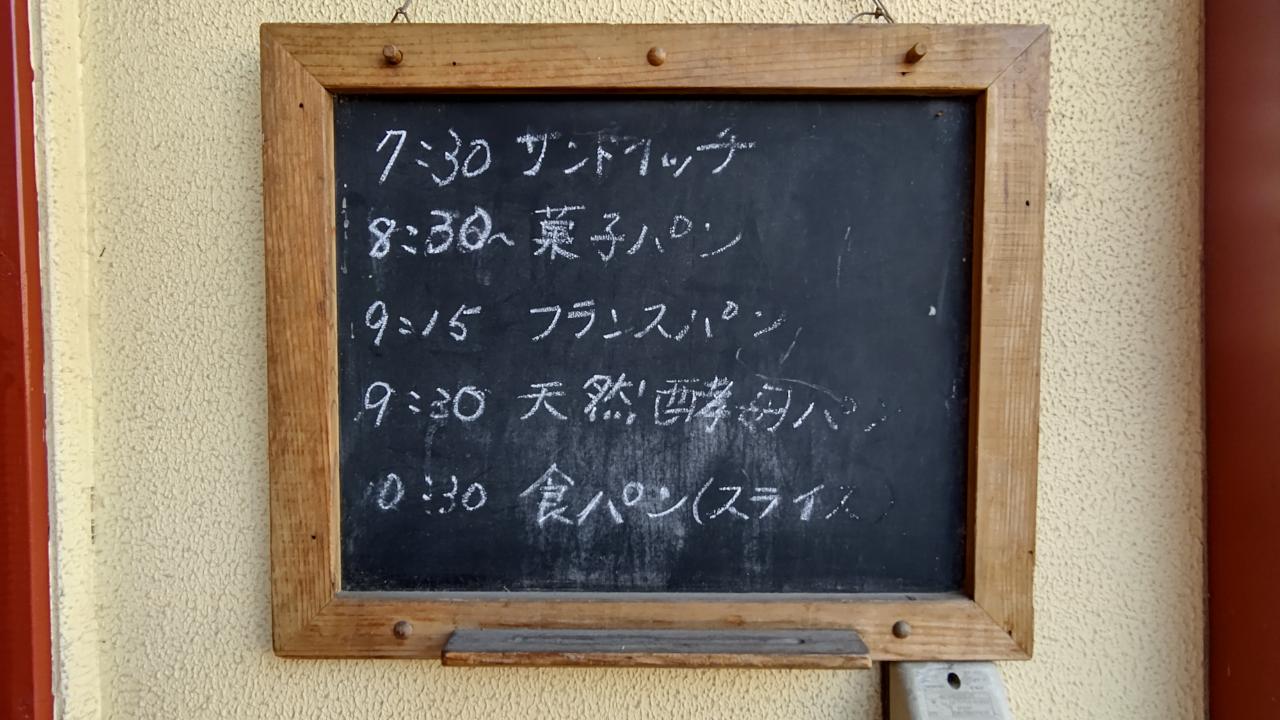 7:30 サンドイッチ
8:30~ 菓子パン
9:15 フランスパン
9:30 天然酵母パン
10:30 食パン(スライス)